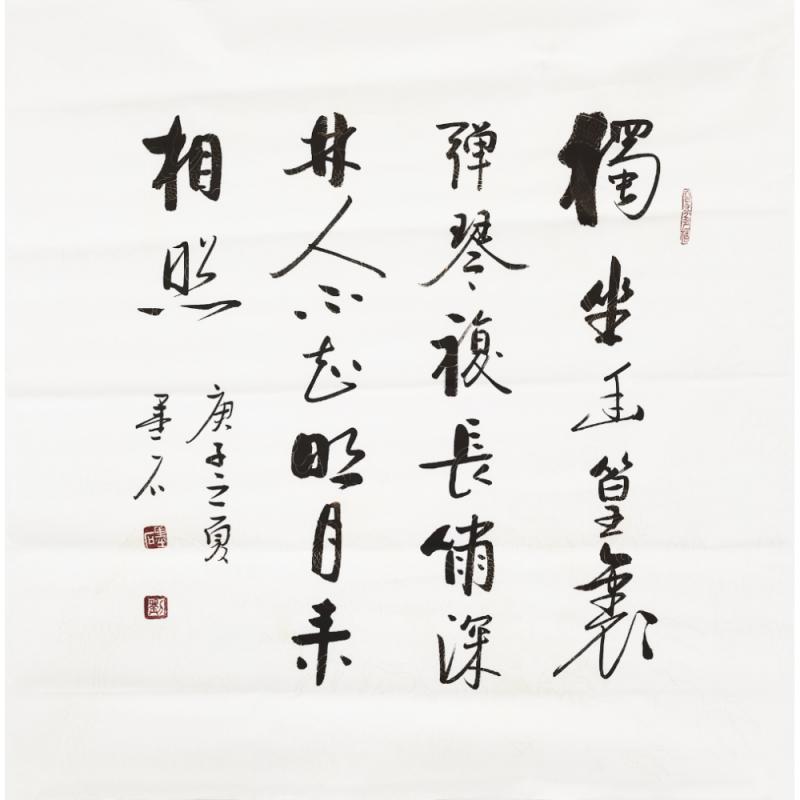 獨坐幽篁裏
弹琴複長嘯深
林人不知明月来
相照
庚子之夏
墨石